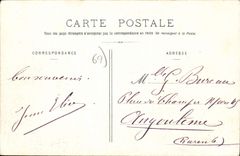 CARTE POSTALE
Tous les pays étrangers n'acceptent pas la correspondance au recto (Se renseigner à la Poste)
CORRESPONDANCE
ADRESSE
69
Bon souvenir
Mlle G. Bureau
Place du Champ de
Angoulême
(Charente)